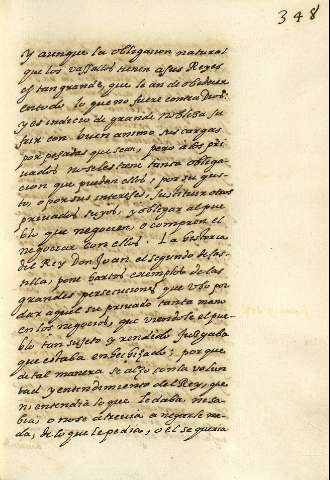 348
Y aunque la obligacion natural
que los vassallos tienen a sus Reyes
es tan grande, que le an de obedecer
en todo lo que no fuere contra Dios:
y es indicio de grande nobleza, su
frir con buen animo sus cargas
por pesadas que sean, pero a los pri
uados no se les tiene tanta obliga
cion que puedan ellos, por su gus
to, o por sus interesses, sustituir otros
priuados suyos, y obligar al pue
blo que negocien, o compren el
negociar con ellos. La historia
del Rey Don Juan el segundo de Cas
tilla, pone hartos exemplos de las
grandes persecuciones que vbo por
dar aquel su priuado tanta mano
en los negocios, que viendole el pue
blo tan sujeto y rendido juzgaba
que estaba enhechizado; porque
de tal manera se alzo con la volun
tad y entendimiento del Rey, que
ni entendia lo que le daba, ni sa
bia, o no se atreuia a negarle na
da, de lo que le pedia, o el se queria